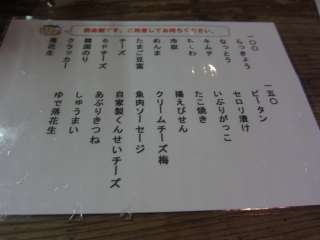 現金制です。ご用意してお待ちください。
一〇〇
らっきょう
なっとう
キムチ
たくわ
冷奴
めんま
たまご豆腐
チーズ
もやチーズ
韓国のり
クラッカー
落花生
一五〇
ピータン
セロリ漬け
いぶりがっこ
たこ焼き
揚えびせん
クリームチーズ梅
魚肉ソーセージ
自家製くんせいチーズ
あぶりきつね
しゅうまい
ゆで落花生